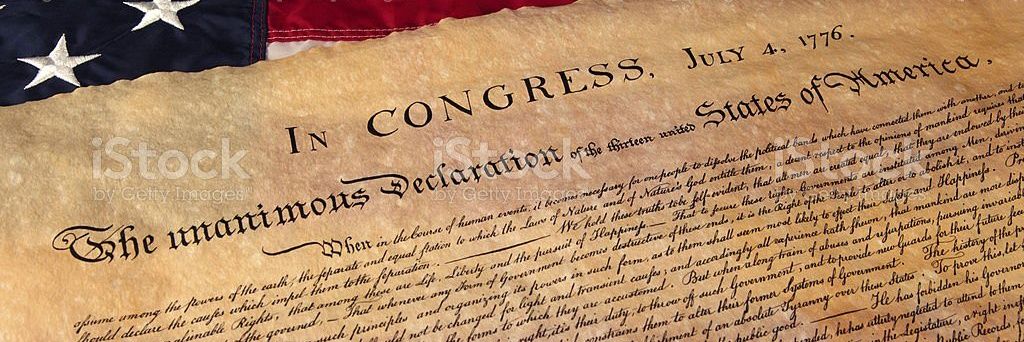 In CONGRESS, July 4, 1776.
The unanimous Declaration of the thirteen united States of America,
When in the Course of human events, it becomes necessary for one people to dissolve the political bands which have connected them with another, and to
assume among the powers of the earth, the separate and equal station to which the Laws of Nature and of Nature's God entitle them, a decent respect to the opinions of mankind requires that
should declare the causes which impel them to the separation. — We hold these truths to be self-evident, that all men are created equal, that they are endowed by their
unalienable Rights, that among these are Life, Liberty and the pursuit of Happiness. — That to secure these rights, Governments are instituted among Men, deriving
of the governed, — That whenever any Form of Government becomes destructive of these ends, it is the Right of the People to alter or to abolish it, and to
such principles and organizing its powers in such form, as to them shall seem most likely to effect their Safety and Happiness.
not be changed for light and transient causes; and accordingly all experience hath shewn, that mankind are more disposed
the forms to which they are accustomed. But when a long train of abuses and usurpations, pursuing invariably
right, it is their duty, to throw off such Government, and to provide new Guards for their future
constrains them to alter their former Systems of Government. The history of the
of an absolute Tyranny over these States. To prove this, let
public good. He has forbidden his Governors
suspended, he has utterly neglected to attend to them.
in the Legislature, a right
Public Records,
iStock iStock iStock
by Getty Images by Getty Images by Getty Images